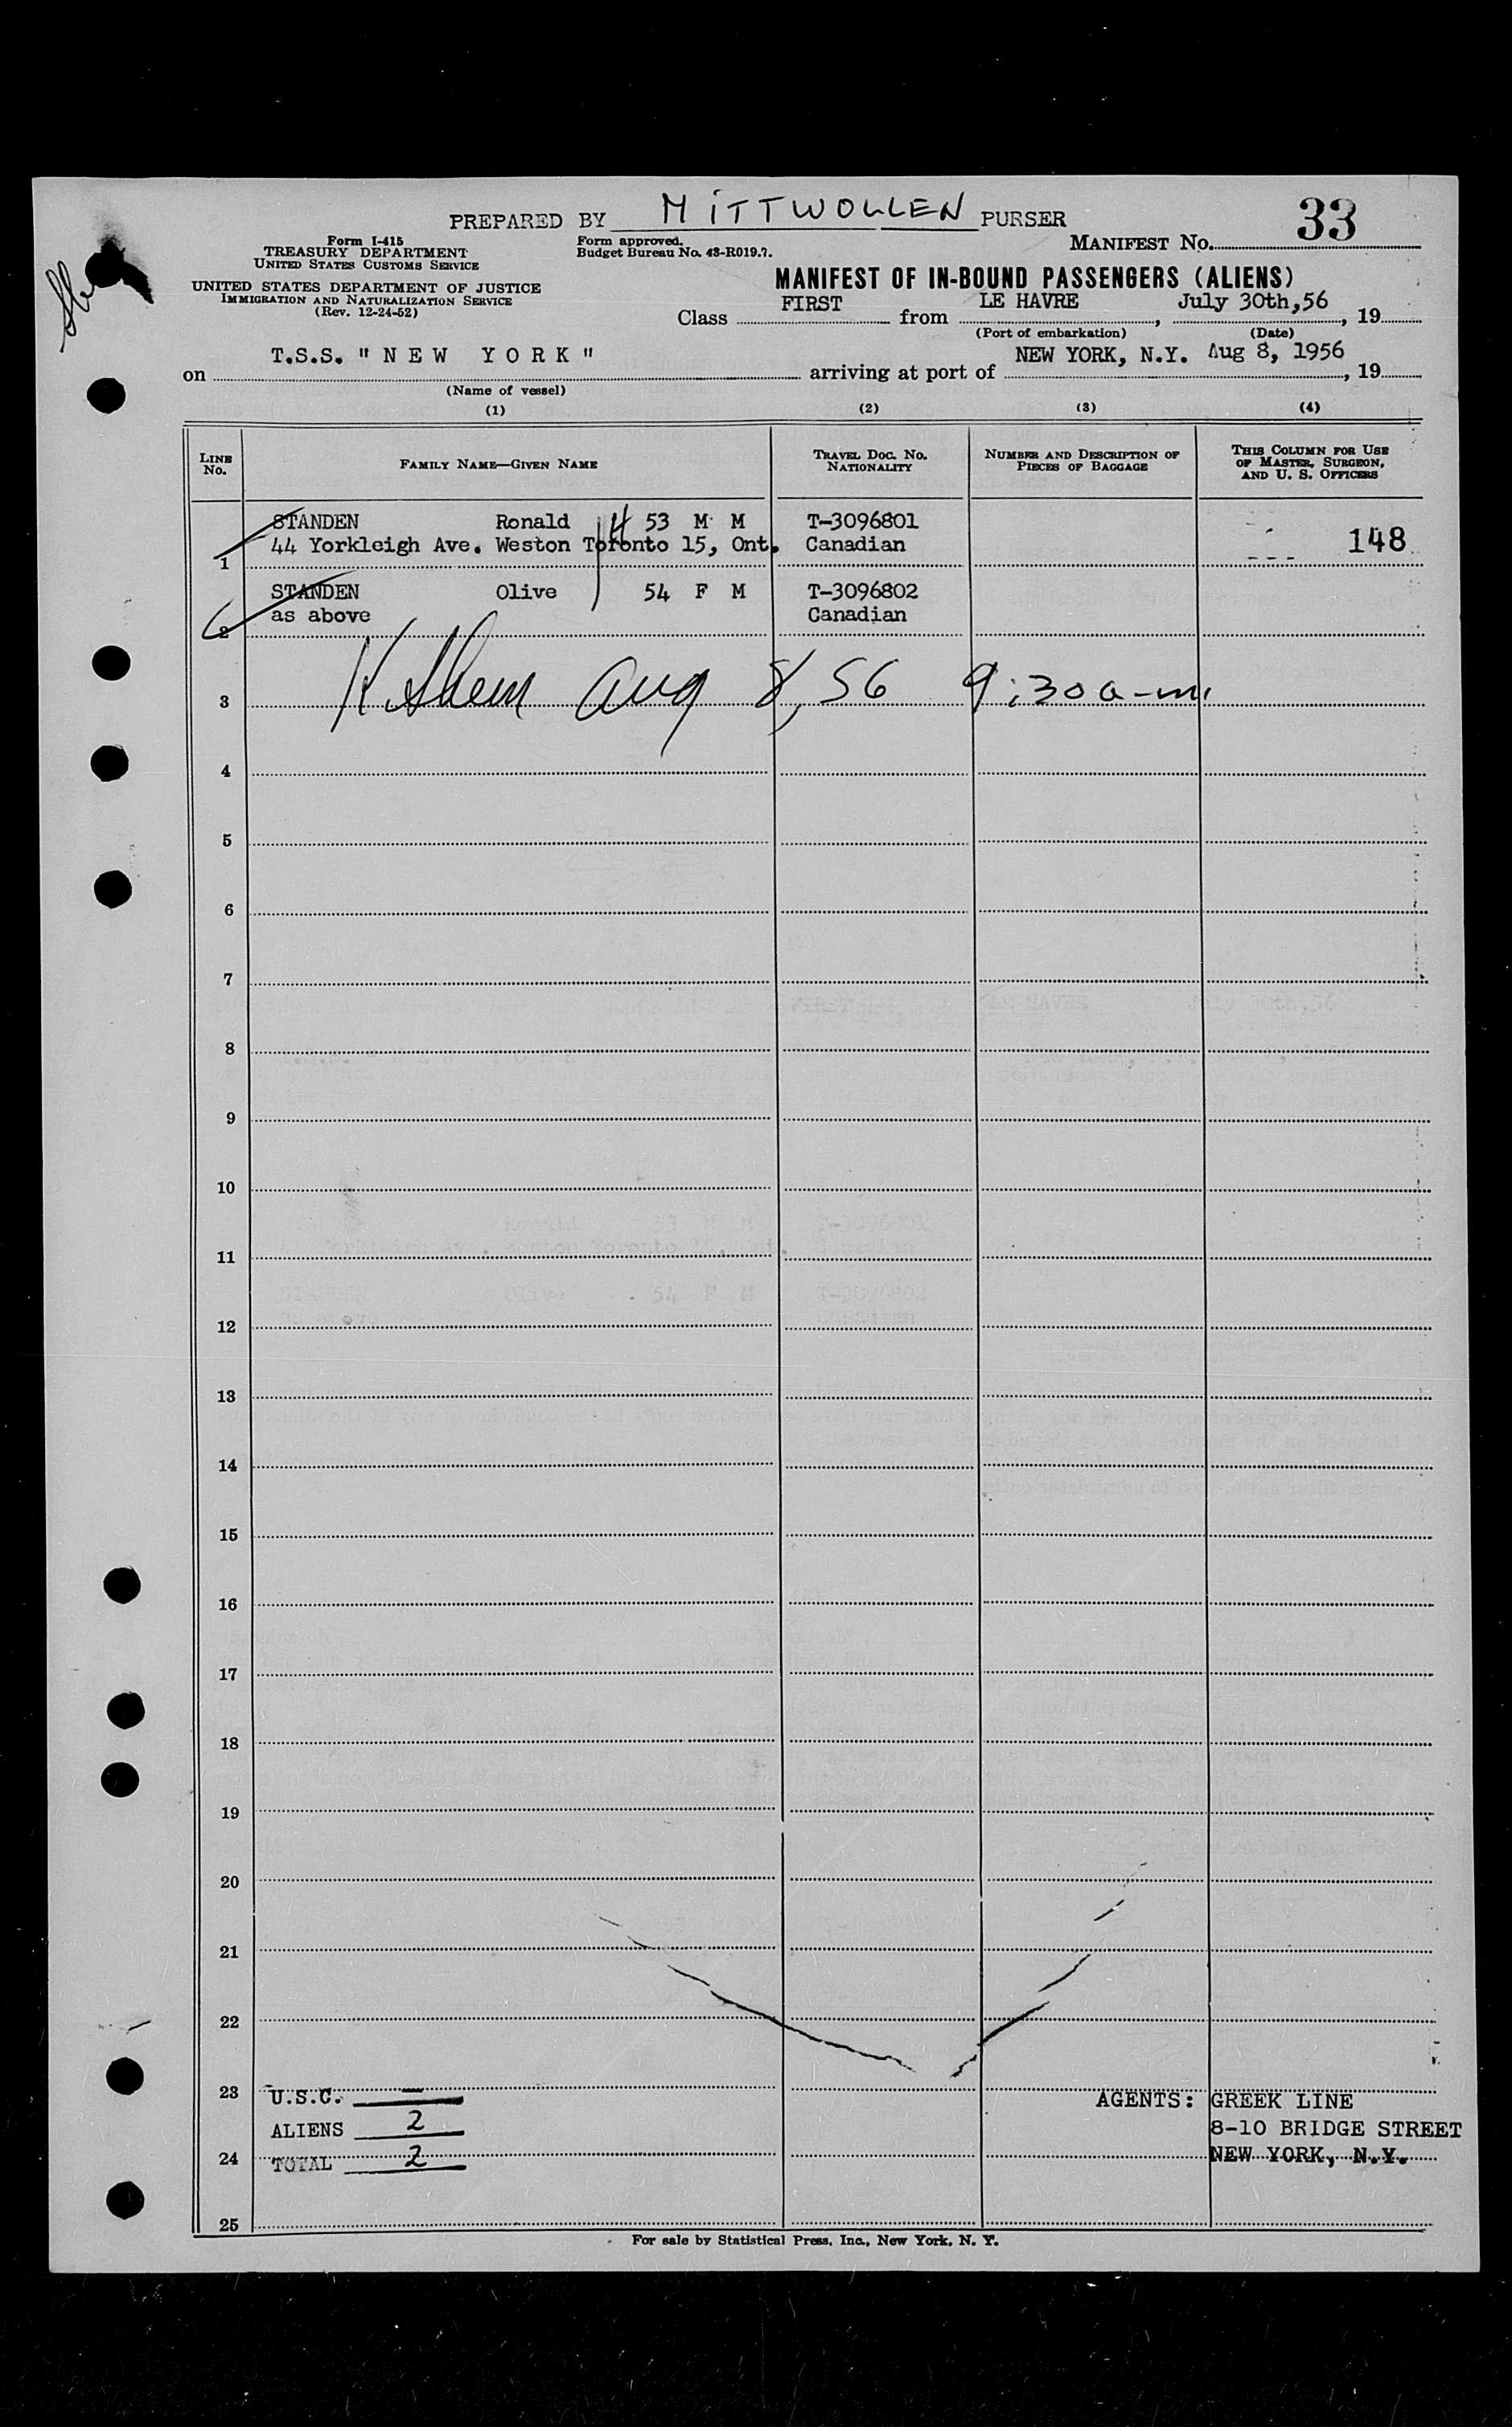 PREPARED BY MITTWOLLEN PURSER
33
Form I-415
TREASURY DEPARTMENT
UNITED STATES CUSTOMS SERVICE
Form approved.
Budget Bureau No. 43-R019.7.
MANIFEST No.
UNITED STATES DEPARTMENT OF JUSTICE
IMMIGRATION AND NATURALIZATION SERVICE
(Rev. 12-24-52)
MANIFEST OF IN-BOUND PASSENGERS (ALIENS)
Class FIRST from LE HAVRE, July 30th,56, 19
(Port of embarkation) (Date)
on T.S.S. "NEW YORK" arriving at port of NEW YORK, N.Y. Aug 8, 1956, 19
(Name of vessel)
(1) (2) (3) (4)
LINE No. FAMILY NAME—GIVEN NAME TRAVEL DOC. NO. NATIONALITY NUMBER AND DESCRIPTION OF PIECES OF BAGGAGE THIS COLUMN FOR USE OF MASTER, SURGEON, AND U. S. OFFICERS
STANDEN Ronald 53 M M T-3096801
1 44 Yorkleigh Ave. Weston Toronto 15, Ont. Canadian --- 148
STANDEN Olive 54 F M T-3096802
2 as above Canadian
3 Aug 8, 56 9:30 a-m.
4
5
6
7
8
9
10
11
12
13
14
15
16
17
18
19
20
21
22
23 U.S.C. — AGENTS: GREEK LINE
ALIENS 2 8-10 BRIDGE STREET
24 TOTAL 2 NEW YORK, N.Y.
25
For sale by Statistical Press, Inc., New York, N. Y.